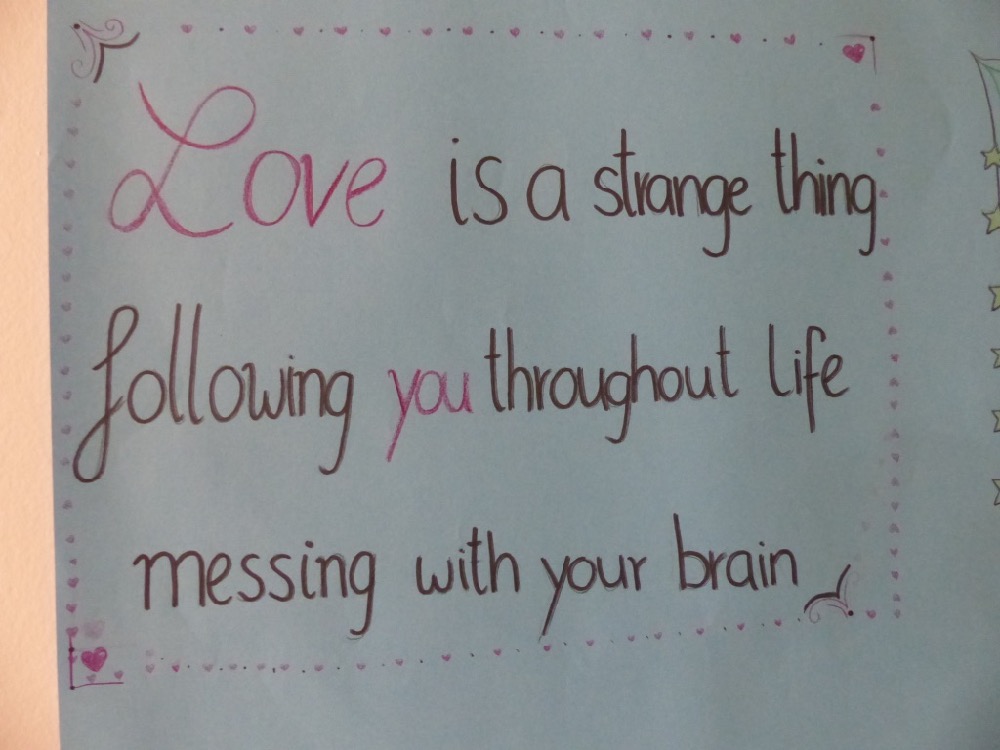 Love is a strange thing
following you throughout life
messing with your brain